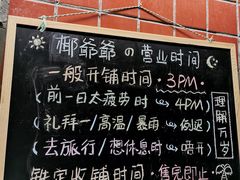 椰爷爷の营业时间
一般开铺时间·3PM·
(前一日太疲劳时→4PM)
(礼拜一/高温/暴雨→倒迟)
(去旅行/想休息时→唔开)
理解万岁
铁定收铺时间:售完即止